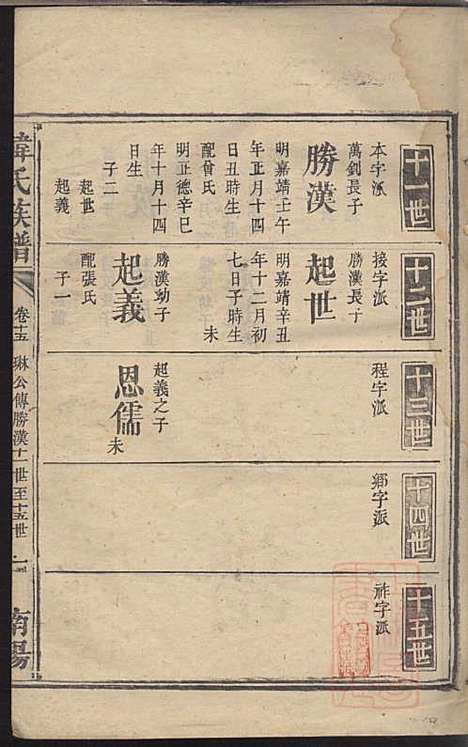 十一世
本字派
萬釗長子
勝漢
明嘉靖壬午
年正月十四
日丑時生
配曾氏
明正德辛巳
年十月十四
日生
子二
起世
起義
十二世
接字派
勝漢長子
起世
明嘉靖辛丑
年十二月初
七日子時生
未
勝漢幼子
起義
配張氏
子一
十三世
程字派
起義之子
恩儒
未
十四世
鄉字派
十五世
祚字派
韓氏族譜
卷十五
琳公傳勝漢十一世至十五世
一
南陽